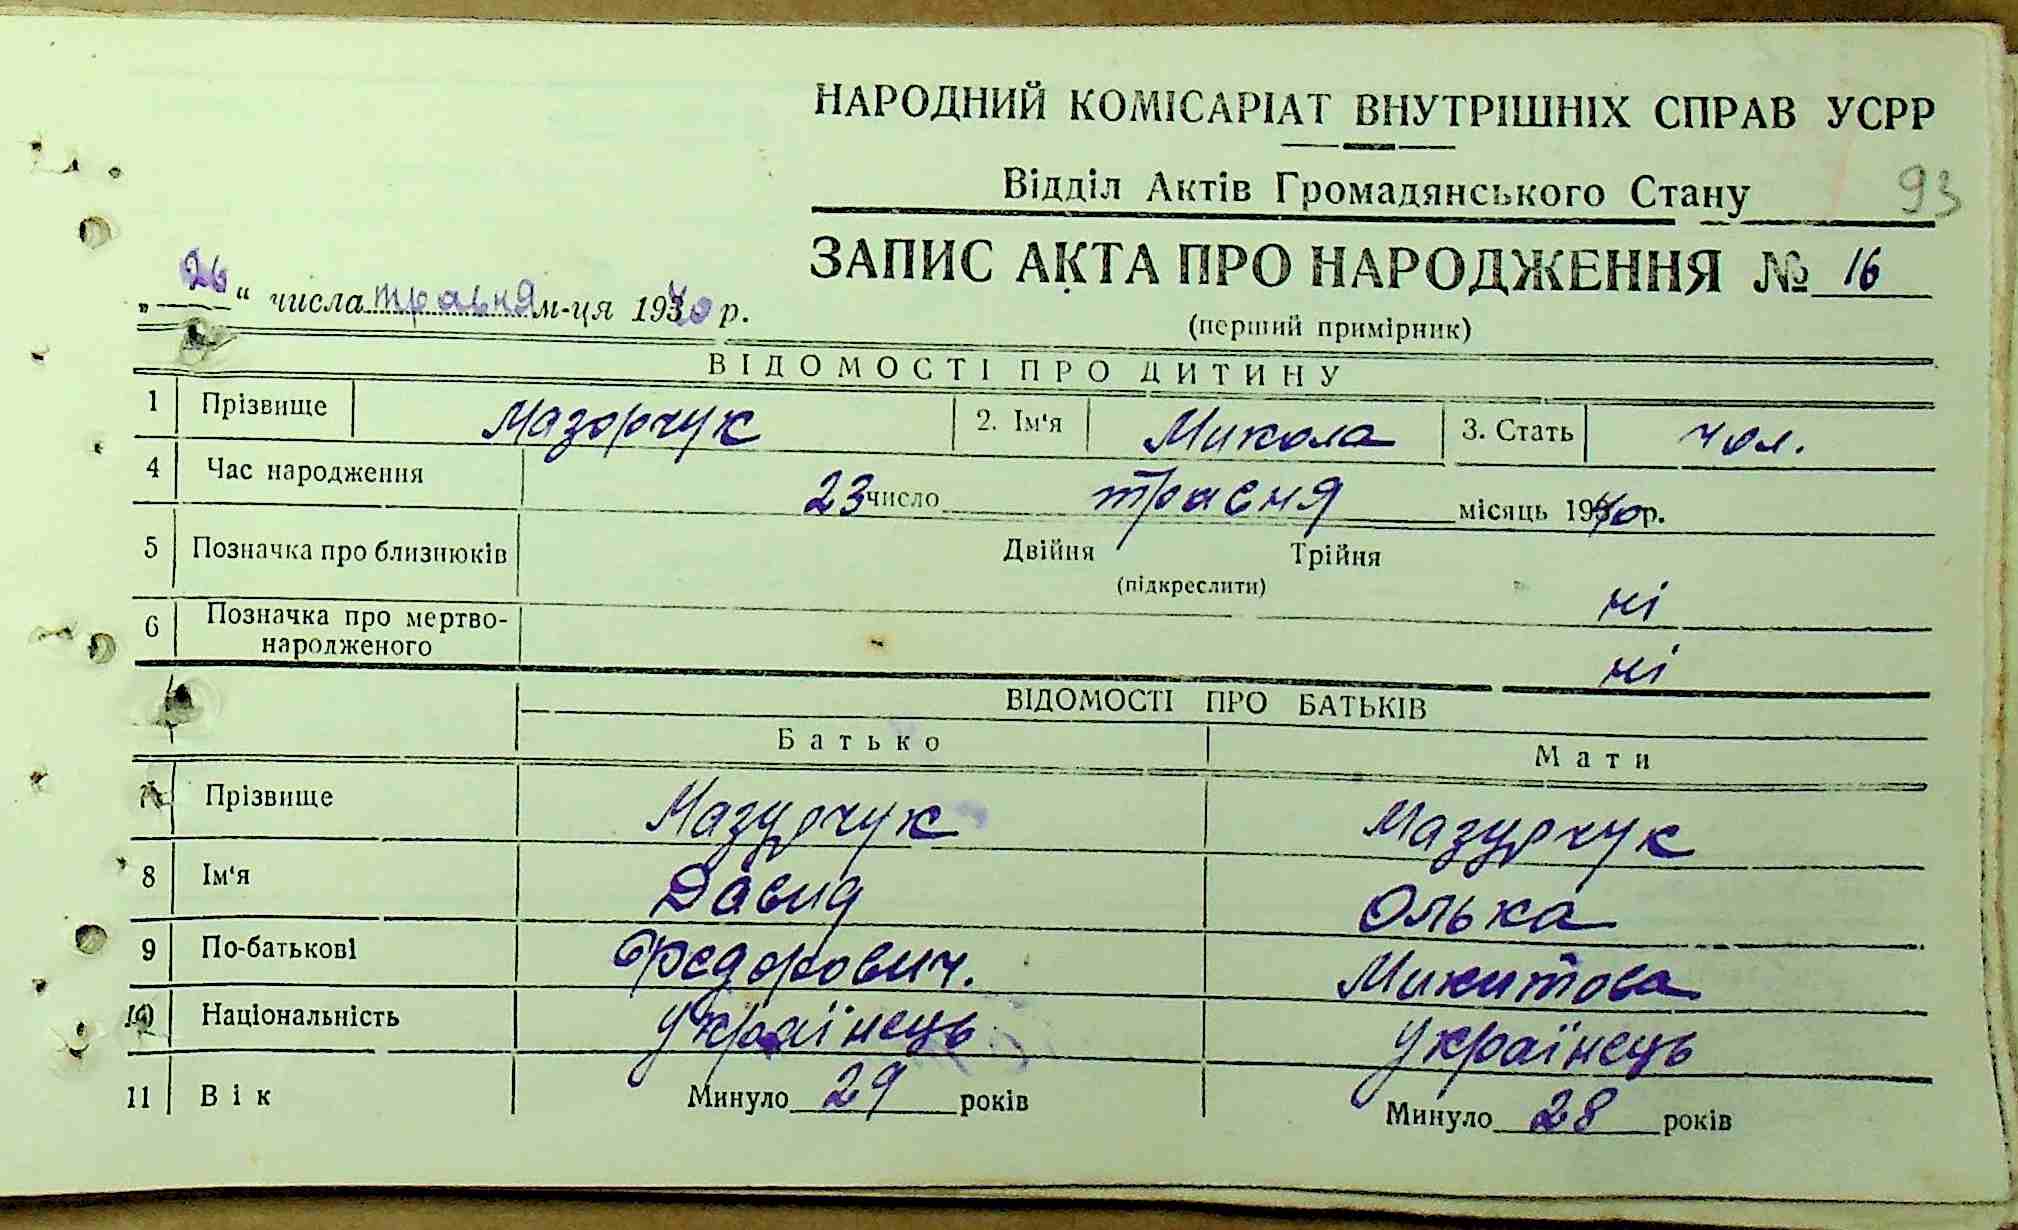 НАРОДНИЙ КОМІСАРІАТ ВНУТРІШНІХ СПРАВ УСРР
Відділ Актів Громадянського Стану 93
ЗАПИС АКТА ПРО НАРОДЖЕННЯ № 16
„26“ числа травня м-ця 1940 р.
(перший примірник)
ВІДОМОСТІ ПРО ДИТИНУ
1 Прізвище Мазорчук 2. Ім'я Микола 3. Стать чол.
4 Час народження 23 число травня місяць 1940 р.
5 Позначка про близнюків Двійня Трійня
(підкреслити)
ні
6 Позначка про мертво-
народженого
ні
ВІДОМОСТІ ПРО БАТЬКІВ
Батько Мати
7 Прізвище Мазурчук Мазурчук
8 Ім'я Давид Олька
9 По-батькові Федорович. Микитова
10 Національність Українець Українець
11 Вік Минуло 29 років Минуло 28 років